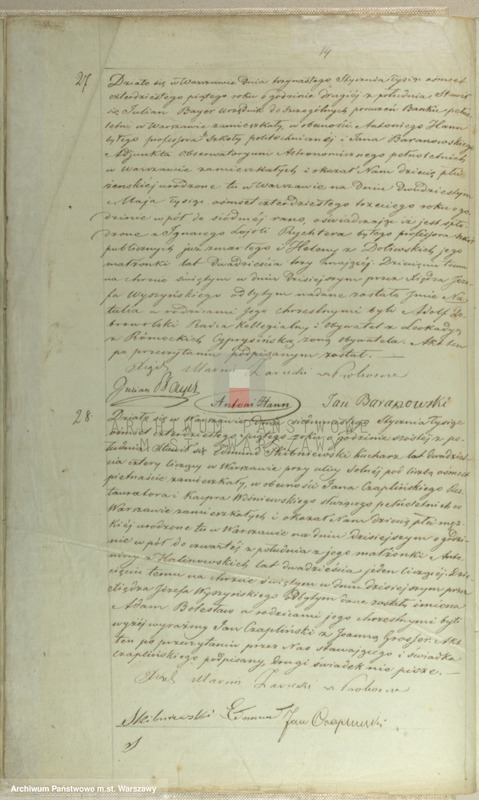 14
27
Działo się w Warszawie dnia trzynastego Stycznia tysiąc ośmset
czterdziestego piątego roku o godzinie drugiéj z południa. Stawił
się Julian Bayer urzędnik do szczególnych poruczeń Banku pełno
letni w Warszawie zamieszkały, w obecności Antoniego Hann
byłego professora Szkoły politechnicznéj i Jana Baranowskiego
Adjunkta Obserwatoryum Astronomicznego pełnoletnich
w Warszawie zamieszkałych i okazał Nam dziecię płci
żeńskiéj urodzone tu w Warszawie na dniu dwudziestym
Maja tysiąc ośmset czterdziestego trzeciego roku go
dzinie wpół do siódméj rano, oświadczając iż jest spło
dzone z Ignacego Lojoli Rychtera byłego professora szkół
publicznych już zmarłego i Heleny z jego
małżonki lat dwadzieścia trzy mającéj. Dziecięciu temu
na chrzcie świętym w dniu dzisiejszym przez Xiędza Józe
fa Wyszyńskiego odbytym nadane zostało Imie Na
talia a rodzicami Jego chrzestnymi byli Adolf
Radca Kollegialny i Obywatel z Leokadyą
z żoną obywatela. Akt ten
po przeczytaniu podpisanym został.
Xiądz Marcin
Julian Bayer
Antoni Hann
Jan Baranowski
ARCHIWUM PAŃSTWOWE
M.ST. WARSZAWY
28
Działo się w Warszawie dnia Stycznia tysiąc
ośmset czterdziestego piątego roku o godzinie szóstéj z po
łudnia. Stawił się Dominik kucharz lat dwadzieś
cia cztery liczący w Warszawie przy ulicy Solnéj pod liczbą ośmset
piętnaście zamieszkały, w obecności Jana Czaplińskiego Res
tauratora i Kacpra Wiśniewskiego służącego pełnoletnich w
Warszawie zamieszkałych i okazał Nam dziecię płci męz
kiéj urodzone tu w Warszawie na dniu dzisiejszym o godzi
nie wpół do czwartéj z południa z jego małżonki Anto
niny z Kalinowskich lat dwadzieścia jeden liczącéj. Dzie
cięciu temu na chrzcie świętym w dniu dzisiejszym przez
Xiędza Józefa Wyszyńskiego odbytym dane zostały imiona
Adam Bolesław a rodzicami jego chrzestnymi byli
wyżéj wyrażony Jan Czapliński z Joanną Akt
ten po przeczytaniu przez Nas stawającego i świadka
Czaplińskiego podpisany, drugi świadek nie pisze.
Xiądz Marcin
Jan Czapliński
Archiwum Państwowe m.st. Warszawy